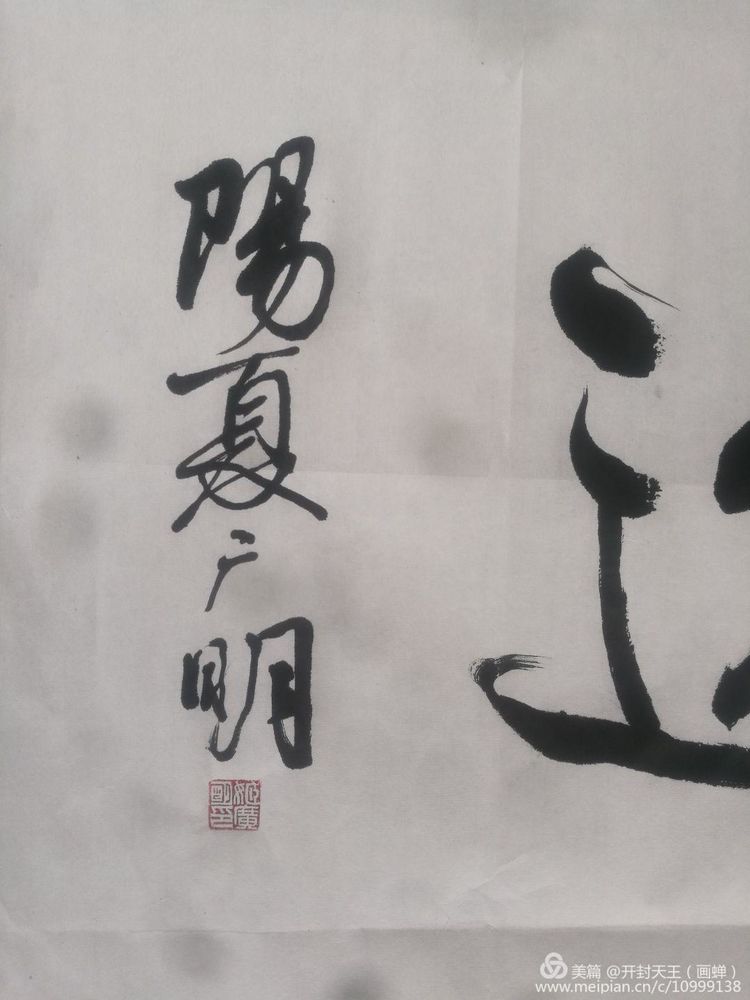 陽夏广明
姬廣明印
美篇 @开封天王（画蝉）
www.meipian.cn/c/10999138